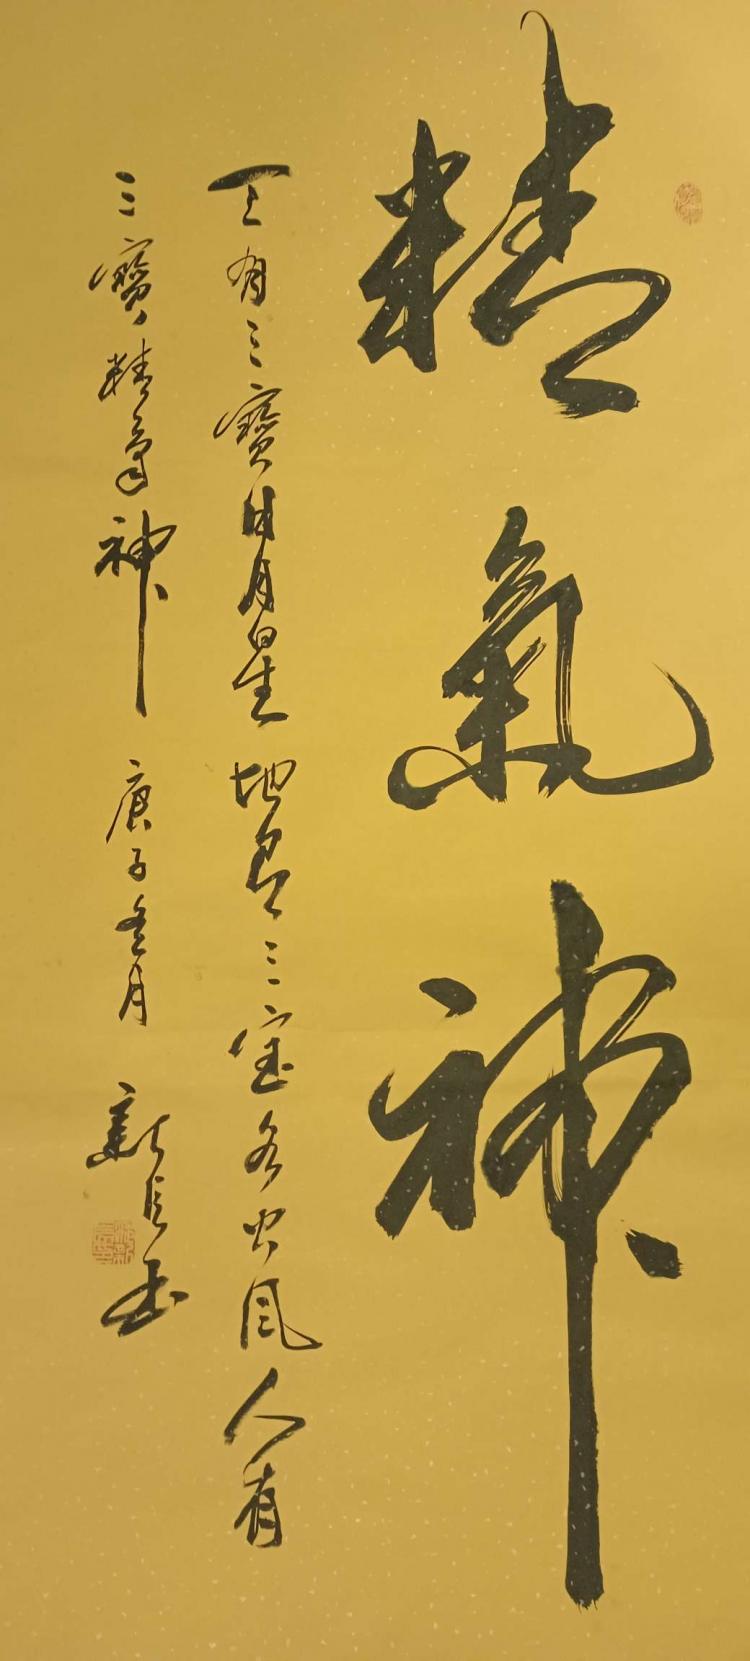 精氣神
天有三寶日月星地有三宝水火风人有
三寶精氣神 庚子冬月 新